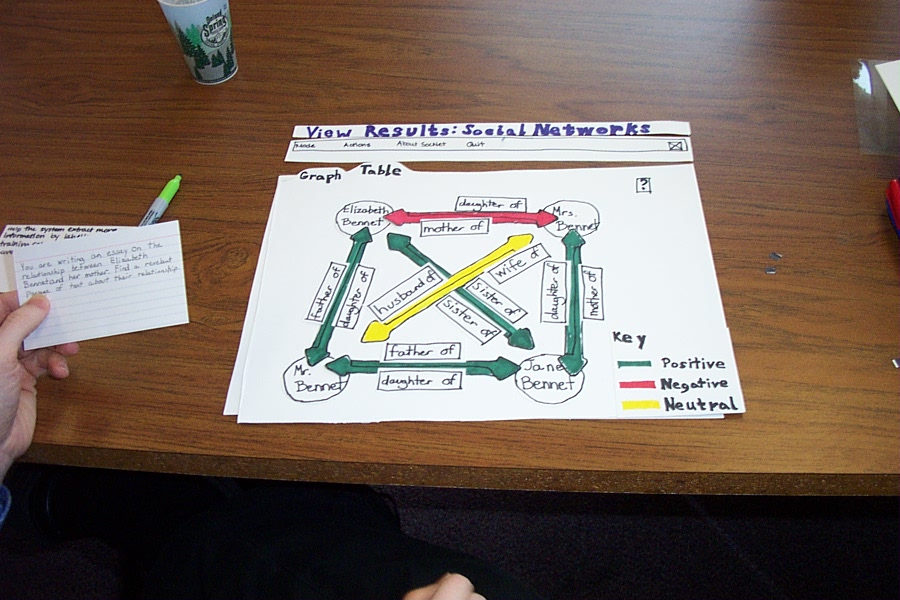 Poland
Spring
View Results: Social Networks
Node Actions About SocNet Quit
Graph Table
?
Elizabeth
Bennet
daughter of
mother of
Mrs.
Bennet
father of
daughter of
husband of
wife of
Sister of
Sister of
daughter of
mother of
Mr.
Bennet
father of
daughter of
Jane
Bennet
Key
Positive
Negative
Neutral
help the system extract more
information by
You are writing an essay on the
relationship between Elizabeth
Bennet and her mother. Find a
of text about their relationship.